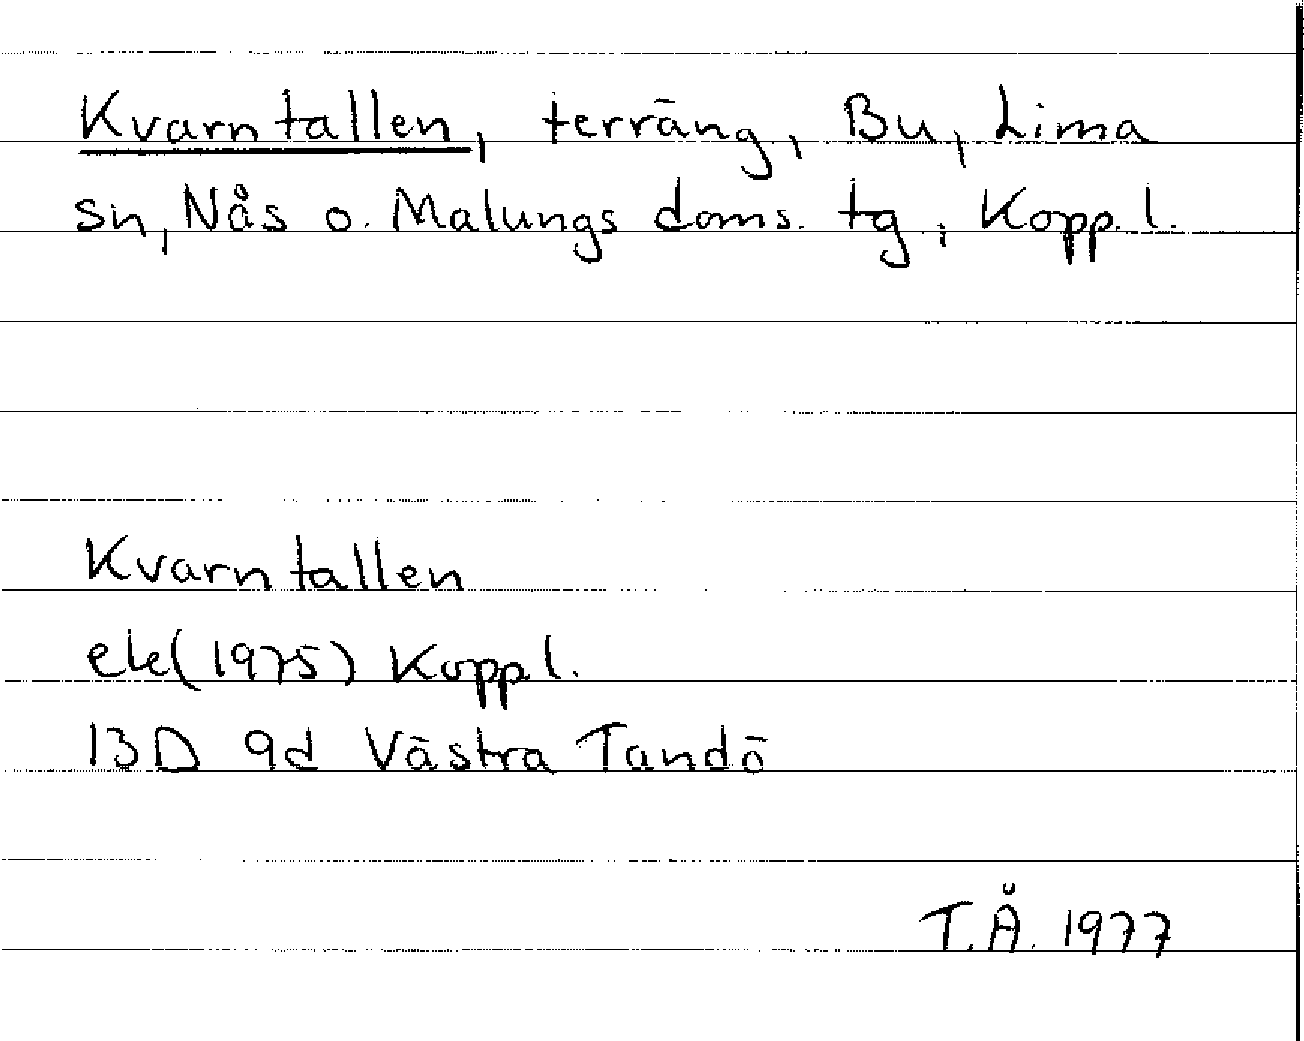 Kvarntallen, terräng, Bu, Lima
sn, Nås o. Malungs doms. tg, Kopp. l.
Kvarntallen
ek (1975) Kopp l.
13D 9d Västra Tandö
T.Å. 1977